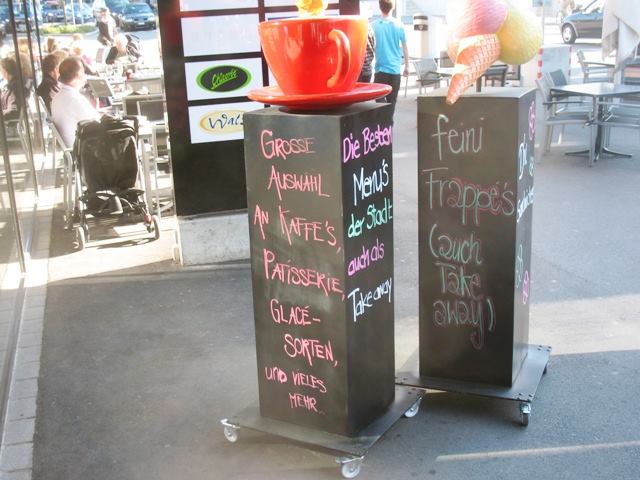 Grosse
Auswahl
an Kaffe's,
Patisserie,
Glacé-
Sorten,
und vieles
mehr...
Die Besten
Menu's
der Stadt
auch als
Take away
feini
Frappé's
(auch
Take
away)